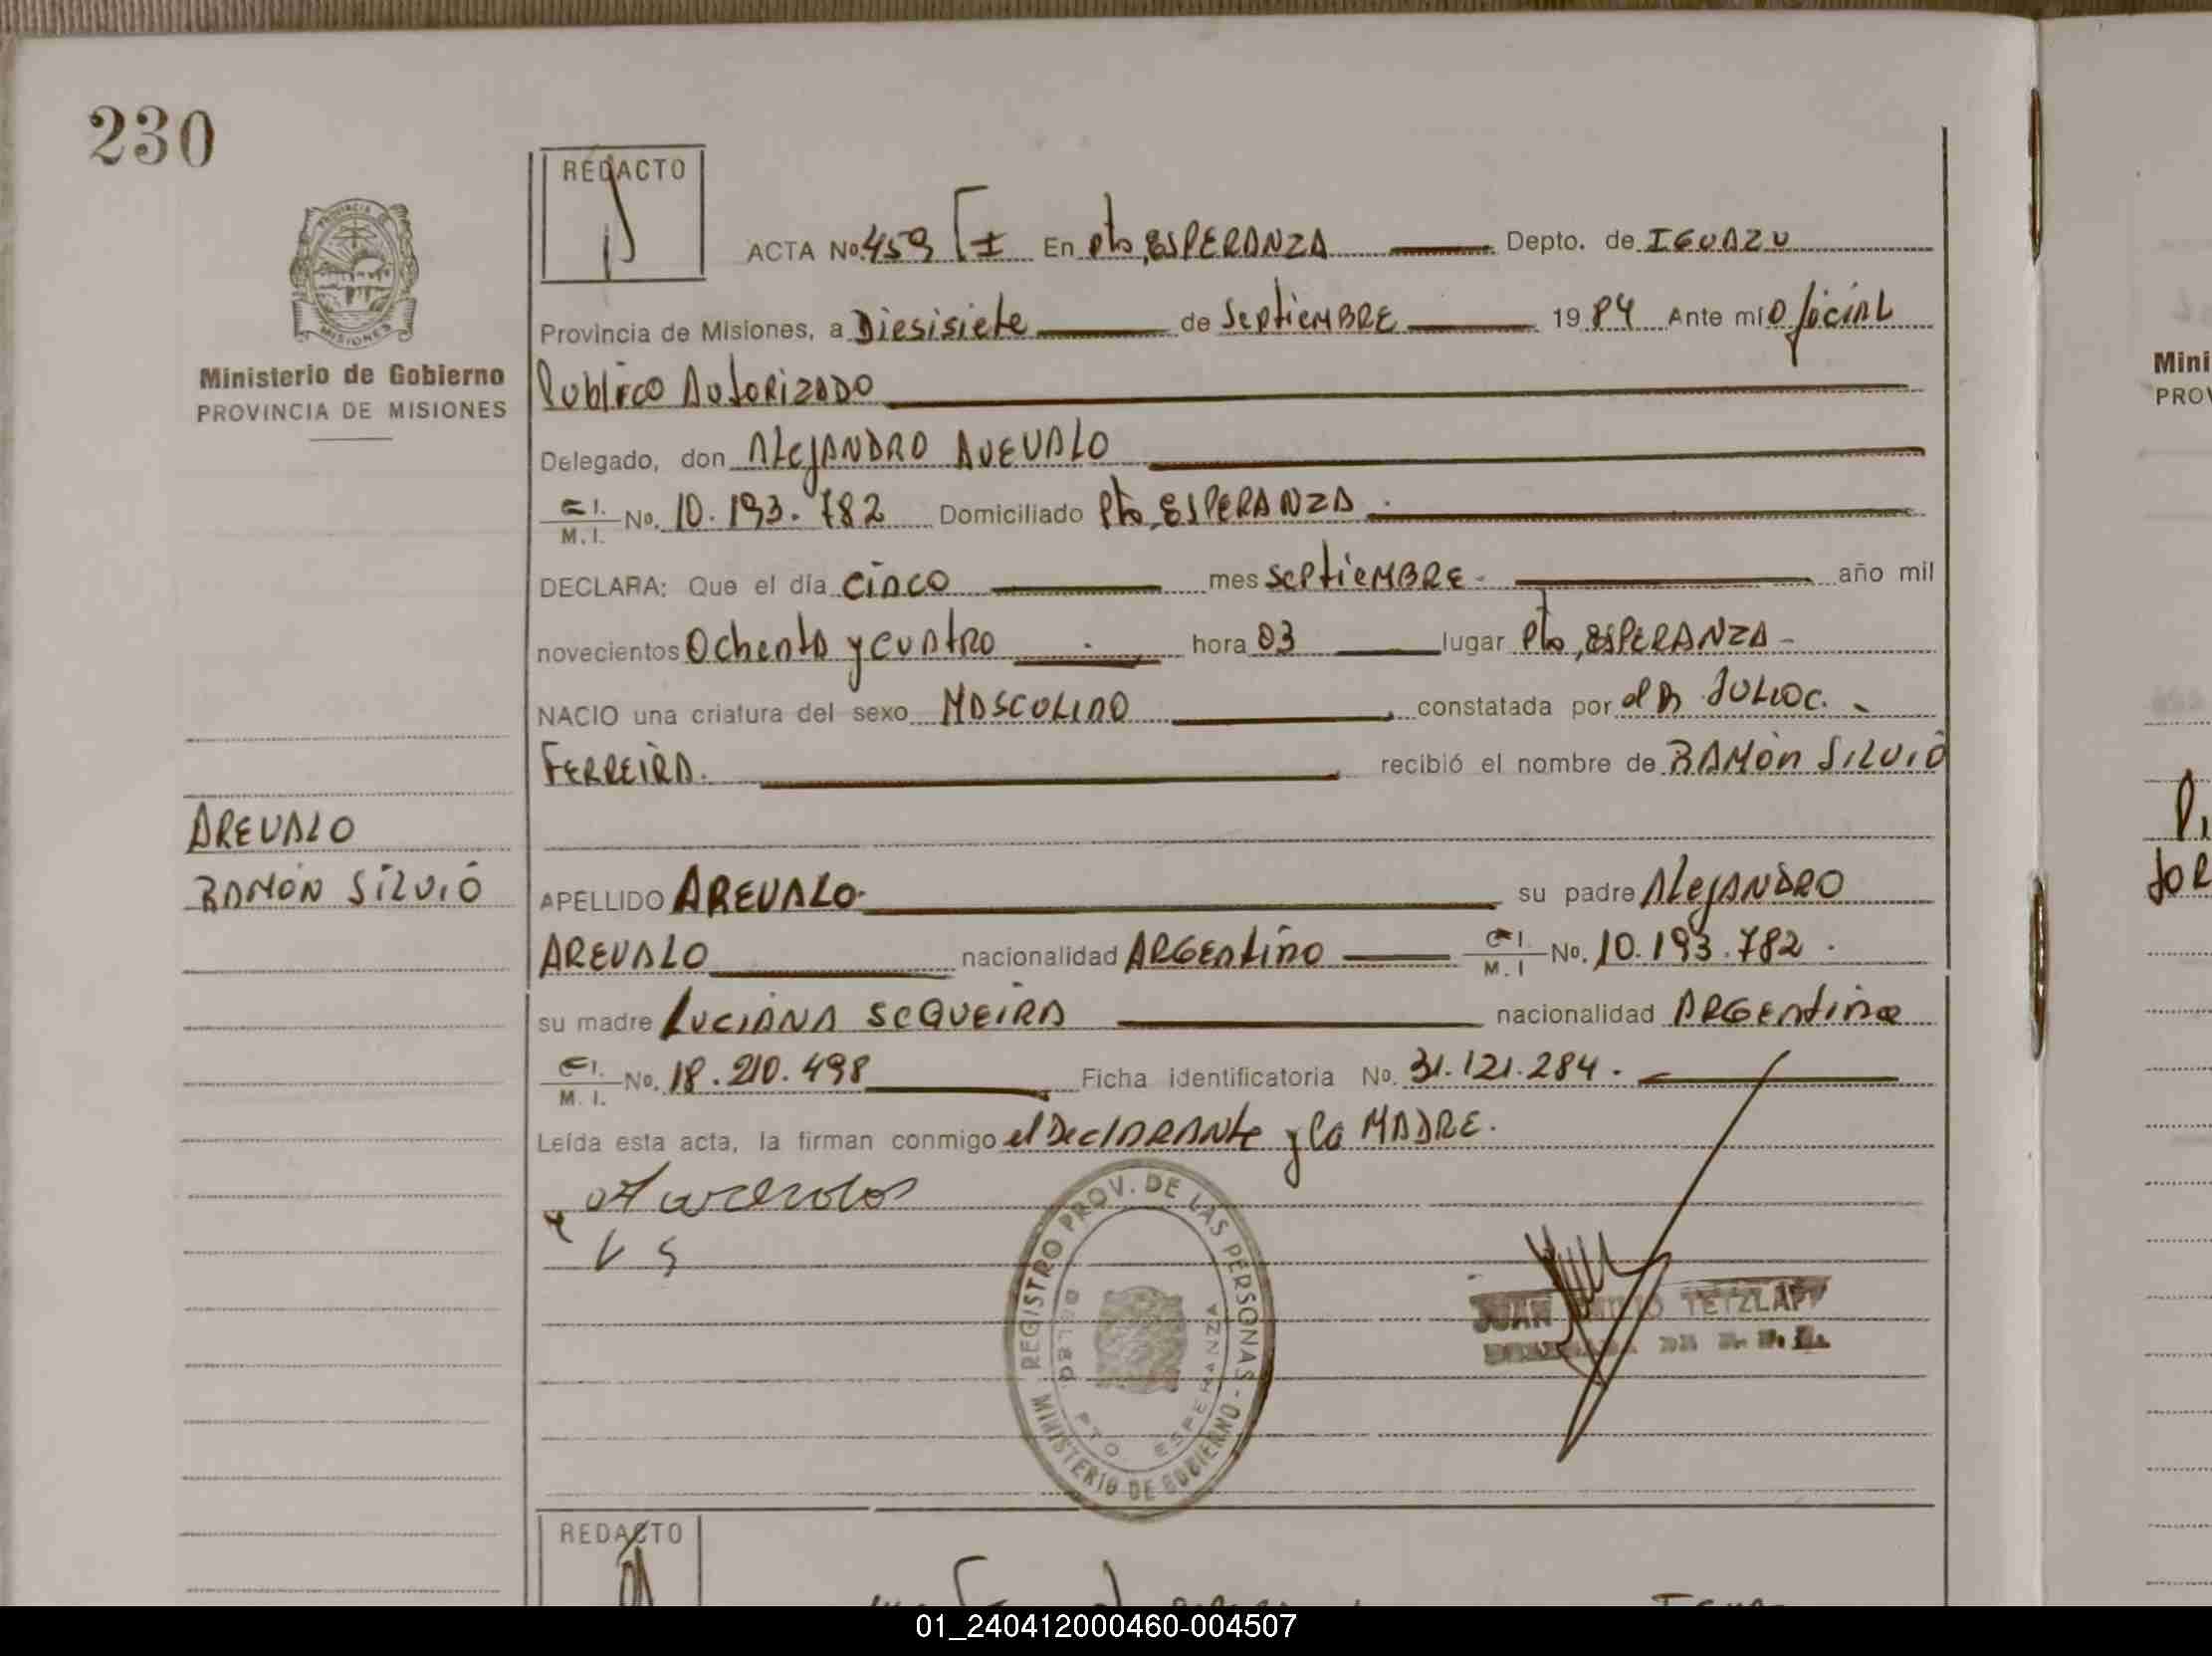 230
REDACTO
PROVINCIA DE
MISIONES
ACTA No. 459 TI En Pto, ESPERANZA Depto. de IGUAZU
Provincia de Misiones, a Diesisiete de Septiembre 1984 Ante mí Oficial
Ministerio de Gobierno
PROVINCIA DE MISIONES
Publico Autorizado
Delegado, don Alejandro AVEVALO
C.I. M.I. No. 10.193.782 Domiciliado Pto, ESPERANZA.
DECLARA: Que el día cinco mes septiembre - año mil
novecientos Ochenta y cuatro hora 03 lugar Pto, ESPERANZA -
NACIO una criatura del sexo MASCULINO constatada por el Dr. JULIO C. -
FERREIRA. recibió el nombre de RAMÓN SILVIO
AREVALO
RAMÓN SILVIO
APELLIDO AREVALO. su padre Alejandro
AREVALO nacionalidad Argentino C.I. M.I No. 10.193.782.
su madre LUCIANA SEQUEIRA nacionalidad Argentina
C.I. M.I. No. 18.210.498 Ficha identificatoria No. 31.121.284.
Leída esta acta, la firman conmigo el Declarante y la MADRE.
L S
REGISTRO PROV. DE LAS PERSONAS - MINISTERIO DE GOBIERNO
DELEG. PTO. ESPERANZA
JUAN TETZLAFF
REDACTO
Mini
PROV
JOR
01_240412000460-004507